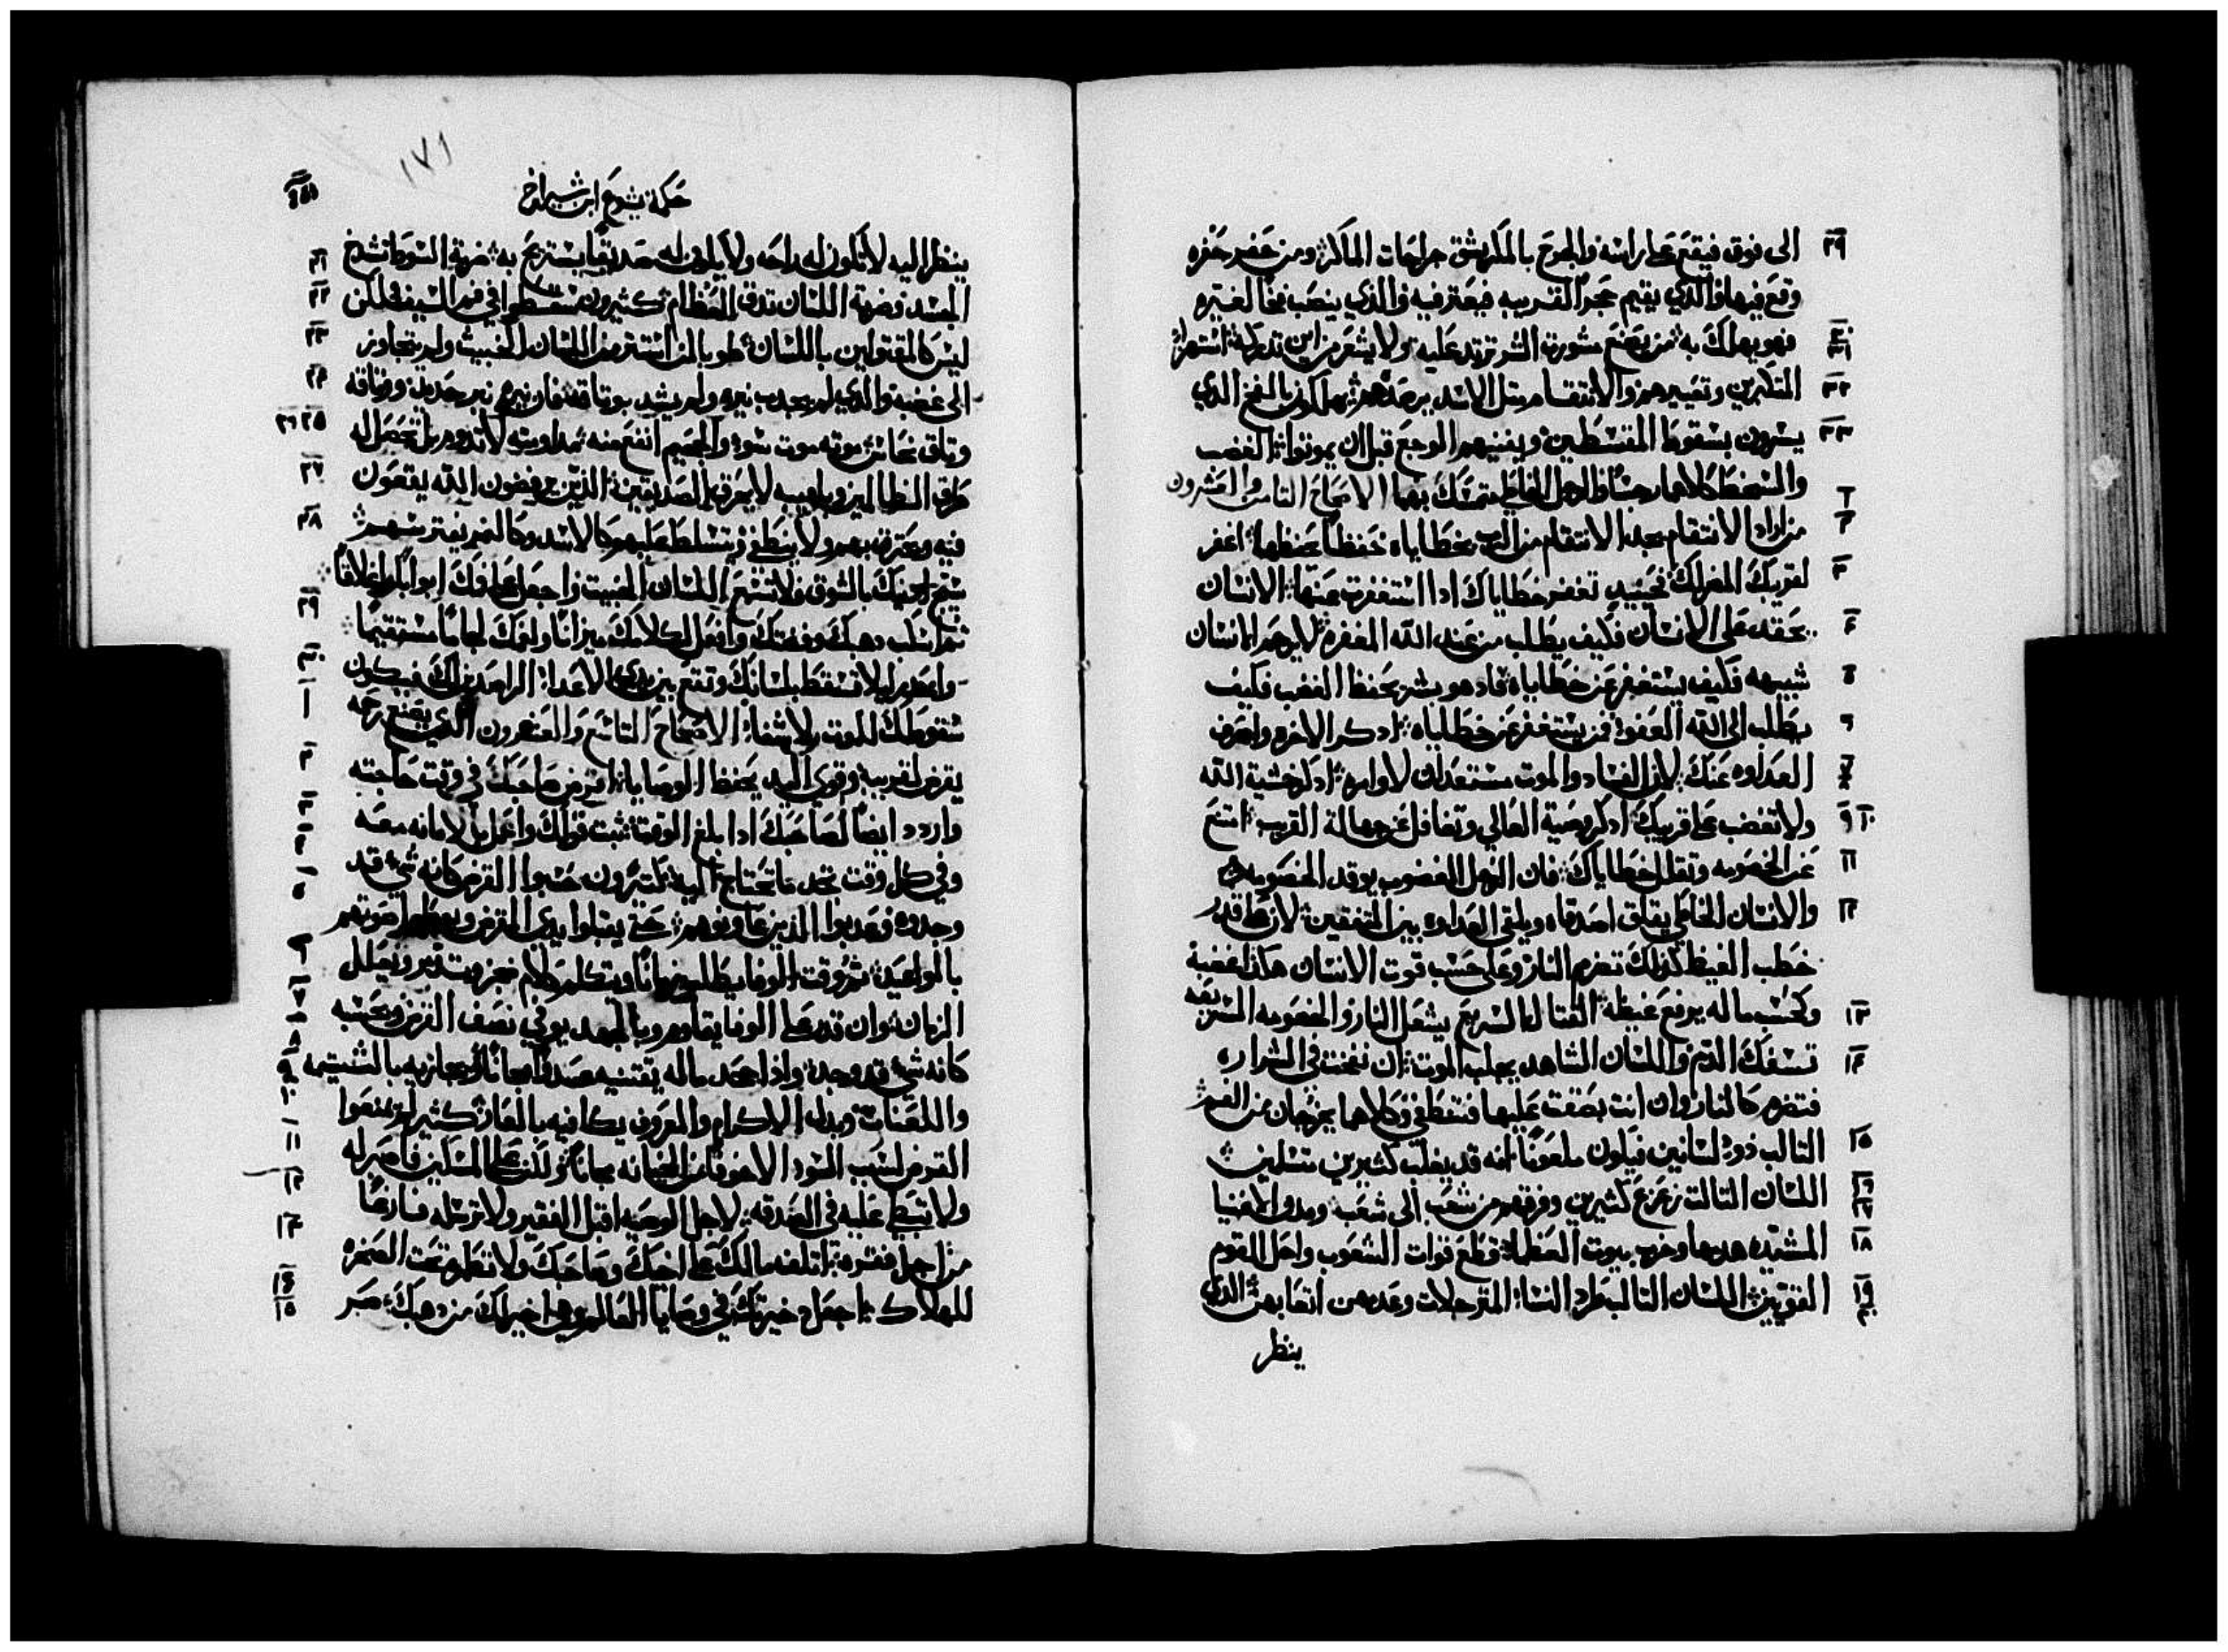 الى فوق فيقع على راسه والجرح بالمكر يشق جراحات الماكر ومن حفر حفره
وقع فيها والذي يقيم حجراً لقريبه فيعتر فيه والذي ينصب فخاً لغيره
فهو يهلك به من يصنع مشورة الشر ترتد عليه ولا يشعر من اين تدركه استهزا
المتكبرين وتعييرهم والانتقام متل الاسد يرصدهم يهلكون بالفخ الدي
يسرون بسقوط المقسطين ويفنيهم الوجع قبل ان يموتوا الغضب
والسخط كلاهما رجسان والرجل الخاطي يتمسك بهما الاصحاح التامن والعشرون
من اراد الانتقام يجد الانتقام من الرب وخطاياه حفظاً يحفظها اغفر
لقريبك المضر لك فحينيد تغفر خطاياك ادا استغفرت عنها الانسان
يحقد على الانسان فكيف يطلب من عند الله المغفره لا يرحم الانسان
شبيهه فكيف يستغفر عن خطاياه فاد هو بشر يحفظ الغضب فكيف
يطلب الى الله العفو من يستغفر عن خطاياه ادكر الاخره واصرف
العداوه عنك لان الفساد والموت مستعدان لاوامره ادكر خشية الله
ولا تغضب على قريبك ادكر وصية العالي وتغافل عن جهالة القريب امتنع
عن الخصومه وتقلل خطاياك فان الرجل الغضوب يوقد الخصومه
والانسان الخاطي يقلق اصدقاه ويلقي العداوه بين المتفقين لان على قدر
حطب الغيظ كذلك تضرم النار وعلى حسب قوت الانسان هكذا غضبه
وكحسب ماله يرفع غيظه القتال السريع يشعل النار والخصومه السريعه
تسفك الدم واللسان الشاهد يجلب الموت ان نفخت في الشراره
فتضرم كالنار وان انت بصقت عليها فتنطفي وكلاهما يخرجان من الفم
التالب دو لسانين فيكون ملعوناً انه قد يغلب كثيرين متسلمين
اللسان التالت زعزع كثيرين وفرقهم من شعب الى شعب ومدن الاغنيا
المشيده هدمها وخرب بيوت العظما قطع قوات الشعوب واحل القوم
القويين اللسان التالت طرد النسا المترجلات وعدمهن اتعابهن الدي
ينظر
حكمة يشوع ابن شيراخ
١٧١
ينظر اليه لا تكون له راحه ولا يكون له صديقاً يستريح به ضربة السوط تشدخ
الجسد وضربة اللسان تدق العظام كثيرون سقطوا في فم السيف ولكن
ليس كالمقتولين باللسان طوبا لمن استتر من اللسان الخبيث ولم يتجاوز
الى غضبه والذي لم يجدب نيره ولم يشد بوتاقه فان نيره نير حديد ووتاقه
وتاق نحاس موته موت سوء والجحيم انفع منه مداومته لا تدوم بل تحصل له
طرق الظالمين وبلهيبه لا يحرق الصديقين الذين يرفضون الله يقعون
فيه ويحترق بهم ولا ينطفي ويتسلط عليهم كالاسد وكالنمر يفترسهم
سيج ادنيك بالشوك ولا تسمع اللسان الخبيت واجعل على فمك ابواباً واغلاقاً
تم اسكب دهبك وفضتك وافعل لكلامك ميزاناً ولفمك لجاماً مستقيماً
واحدر ليلا تسقط بلسانك وتقع بين يدي الاعدا الراصدين لك فيكون
سقوطك للموت بلا شفا الاصحاح التاسع والعشرون الذي يصنع رحمه
يقرض لقريبه وقوي اليد يحفظ الوصايا اقرض صاحبك في وقت حاجته
واردد ايضاً لصاحبك ادا بلغ الوقت تبت قولك واعمل بالامانه معه
وفي كل وقت تجد ما تحتاج اليه كتيرون حسبوا القرض كانه شي قد
وجدوه وعدبوا الذين عاونوهم حتى يقبلوا يدي المقرض صوتهم
بالمواعيد وقت الوفا يطلب زماناً ويتكلم كلام ضجر وتدمر ويتعلل
الزمان وان قدر على الوفا يقاوم وبالجهد يوفي نصف القرض ويحسبه
كانه شي قد وجده واذا جحد ماله يقتنيه عدواً مجاناً ويجازيه بالشتيمه
واللعنات وبدل الاكرام والمعروف يكافيه بالعار كثير لم يمنعوا
القرض لسبب السوء الا خوفاً من الخيانه مجاناً ولكن على المسكين فاصبر له
ولا تبطي عليه في الصدقه لاجل الوصيه اقبل الفقير ولا ترسله فارغاً
من اجل فقره اتلف مالك على اخيك وصاحبك ولا تطمره تحت الصخره
للهلاك اجعل دخيرتك في وصايا العالي وهي اخير لك من دهبك صر